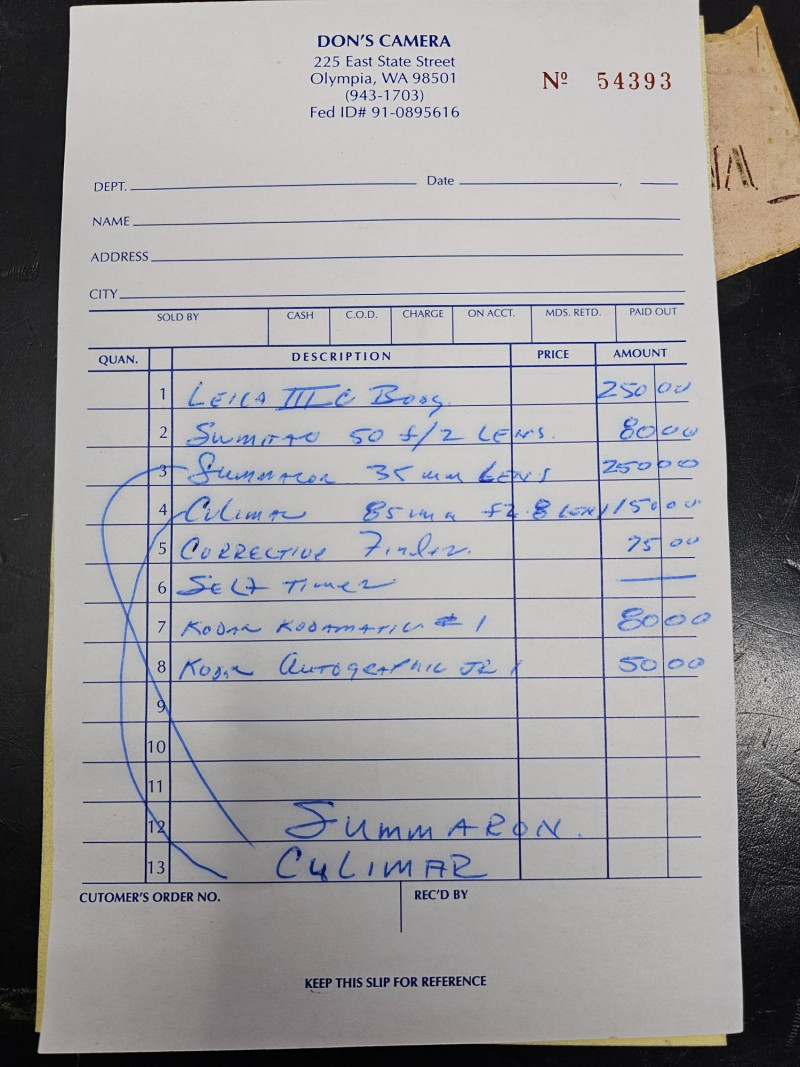 DON'S CAMERA
225 East State Street
Olympia, WA 98501
(943-1703)
Fed ID# 91-0895616
Nº 54393
DEPT. Date ,
NAME
ADDRESS
CITY
SOLD BY CASH C.O.D. CHARGE ON ACCT. MDS. RETD. PAID OUT
QUAN. DESCRIPTION PRICE AMOUNT
1 LEICA IIIC BODY. 250 00
2 50 f/2 LENS. 80 00
3 SUMMARON 35 mm LENS 250 00
4 CULIMAR 85 mm f2.8 LENS 150 00
5 CORRECTIVE Finder. 75 00
6 SELF Timer —
7 KODAK KODAMATIC # 1 80 00
8 KODAK AUTOGRAPHIC JR 1 50 00
9
10
11
12 SUMMARON.
13 CULIMAR
CUTOMER'S ORDER NO. REC'D BY
KEEP THIS SLIP FOR REFERENCE